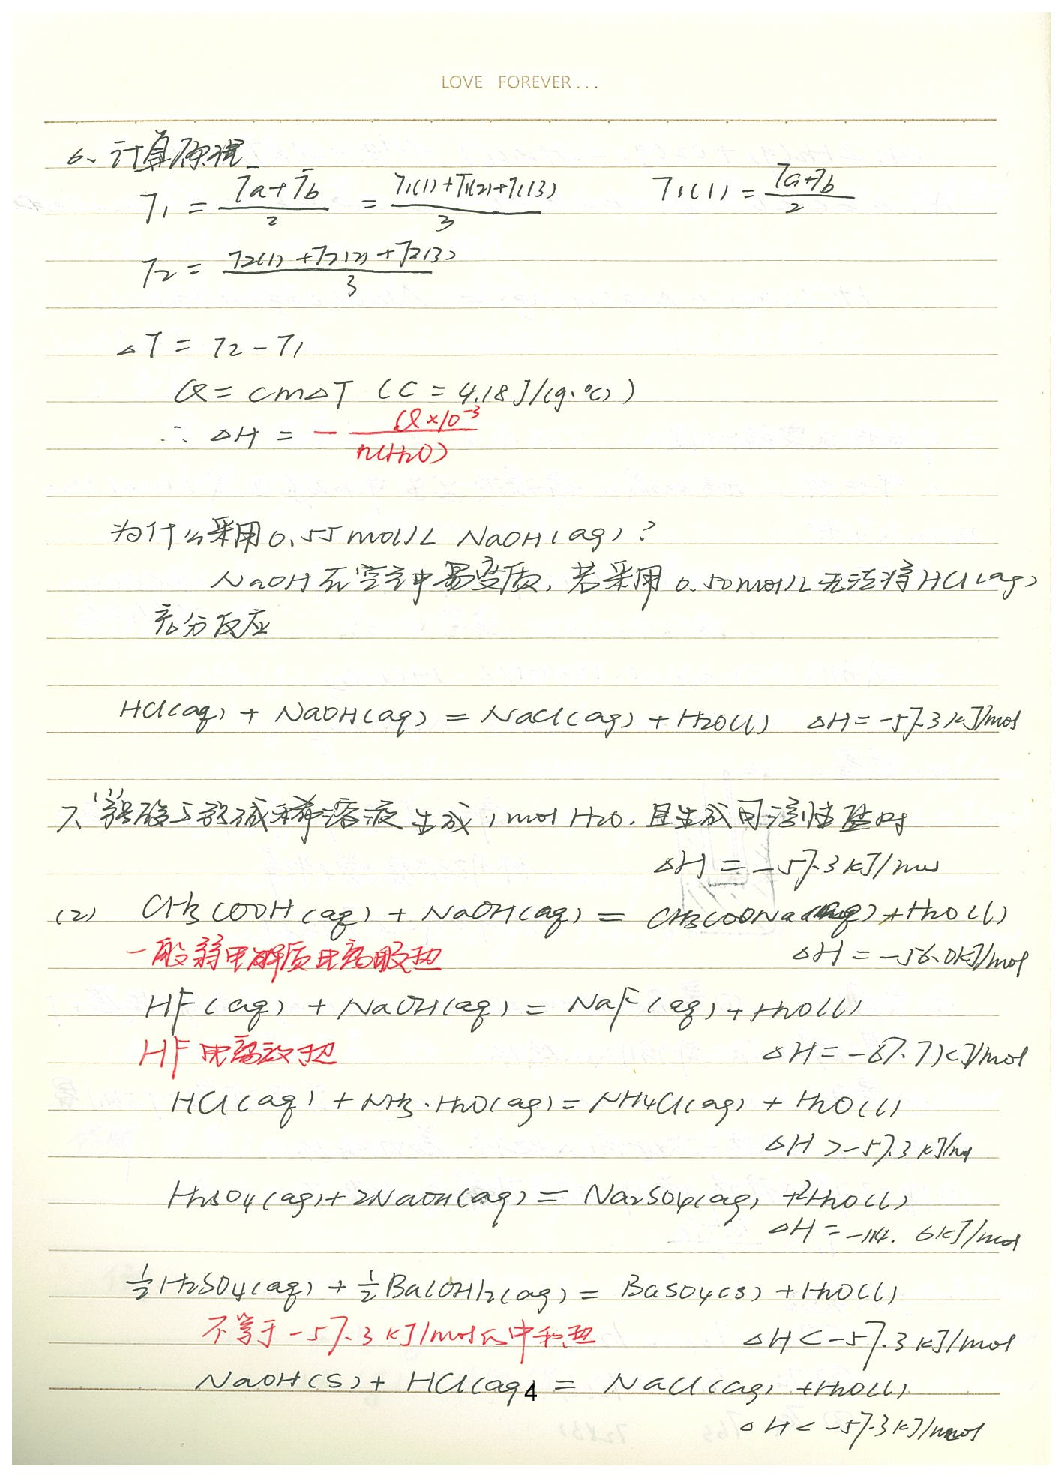 LOVE FOREVER...
6、计算原理
T1 = (Ta+Tb)/2 = (T1(1)+T1(2)+T1(3))/3 T1(1) = (Ta+Tb)/2
T2 = (T2(1)+T2(2)+T2(3))/3
△T = T2-T1
Q = cm△T (C = 4.18J/(g·℃))
∴ △H = - Q×10⁻³/n(H2O)
为什么采用0.55mol/L NaOH(aq)?
NaOH在空气中易变质,若采用0.50mol/L无法将HCl(aq)
充分反应
HCl(aq) + NaOH(aq) = NaCl(aq) + H2O(l) △H=-57.3kJ/mol
7、(1)强酸与强碱稀溶液生成1mol H2O,且生成可溶性盐时
△H = -57.3kJ/mol
(2) CH3COOH(aq) + NaOH(aq) = CH3COONa(aq)+H2O(l)
一般弱电解质电离吸热 △H=-56.0kJ/mol
HF(aq) + NaOH(aq) = NaF(aq)+H2O(l)
HF电离放热 △H=-67.7kJ/mol
HCl(aq) + NH3·H2O(aq) = NH4Cl(aq) + H2O(l)
△H>-57.3kJ/mol
H2SO4(aq)+2NaOH(aq) = Na2SO4(aq) +2H2O(l)
△H=-114.6kJ/mol
½H2SO4(aq) + ½Ba(OH)2(aq) = BaSO4(s) +H2O(l)
不等于-57.3kJ/mol 中和热 △H<-57.3kJ/mol
NaOH(s) + HCl(aq) = NaCl(aq) +H2O(l)
4
△H<-57.3kJ/mol